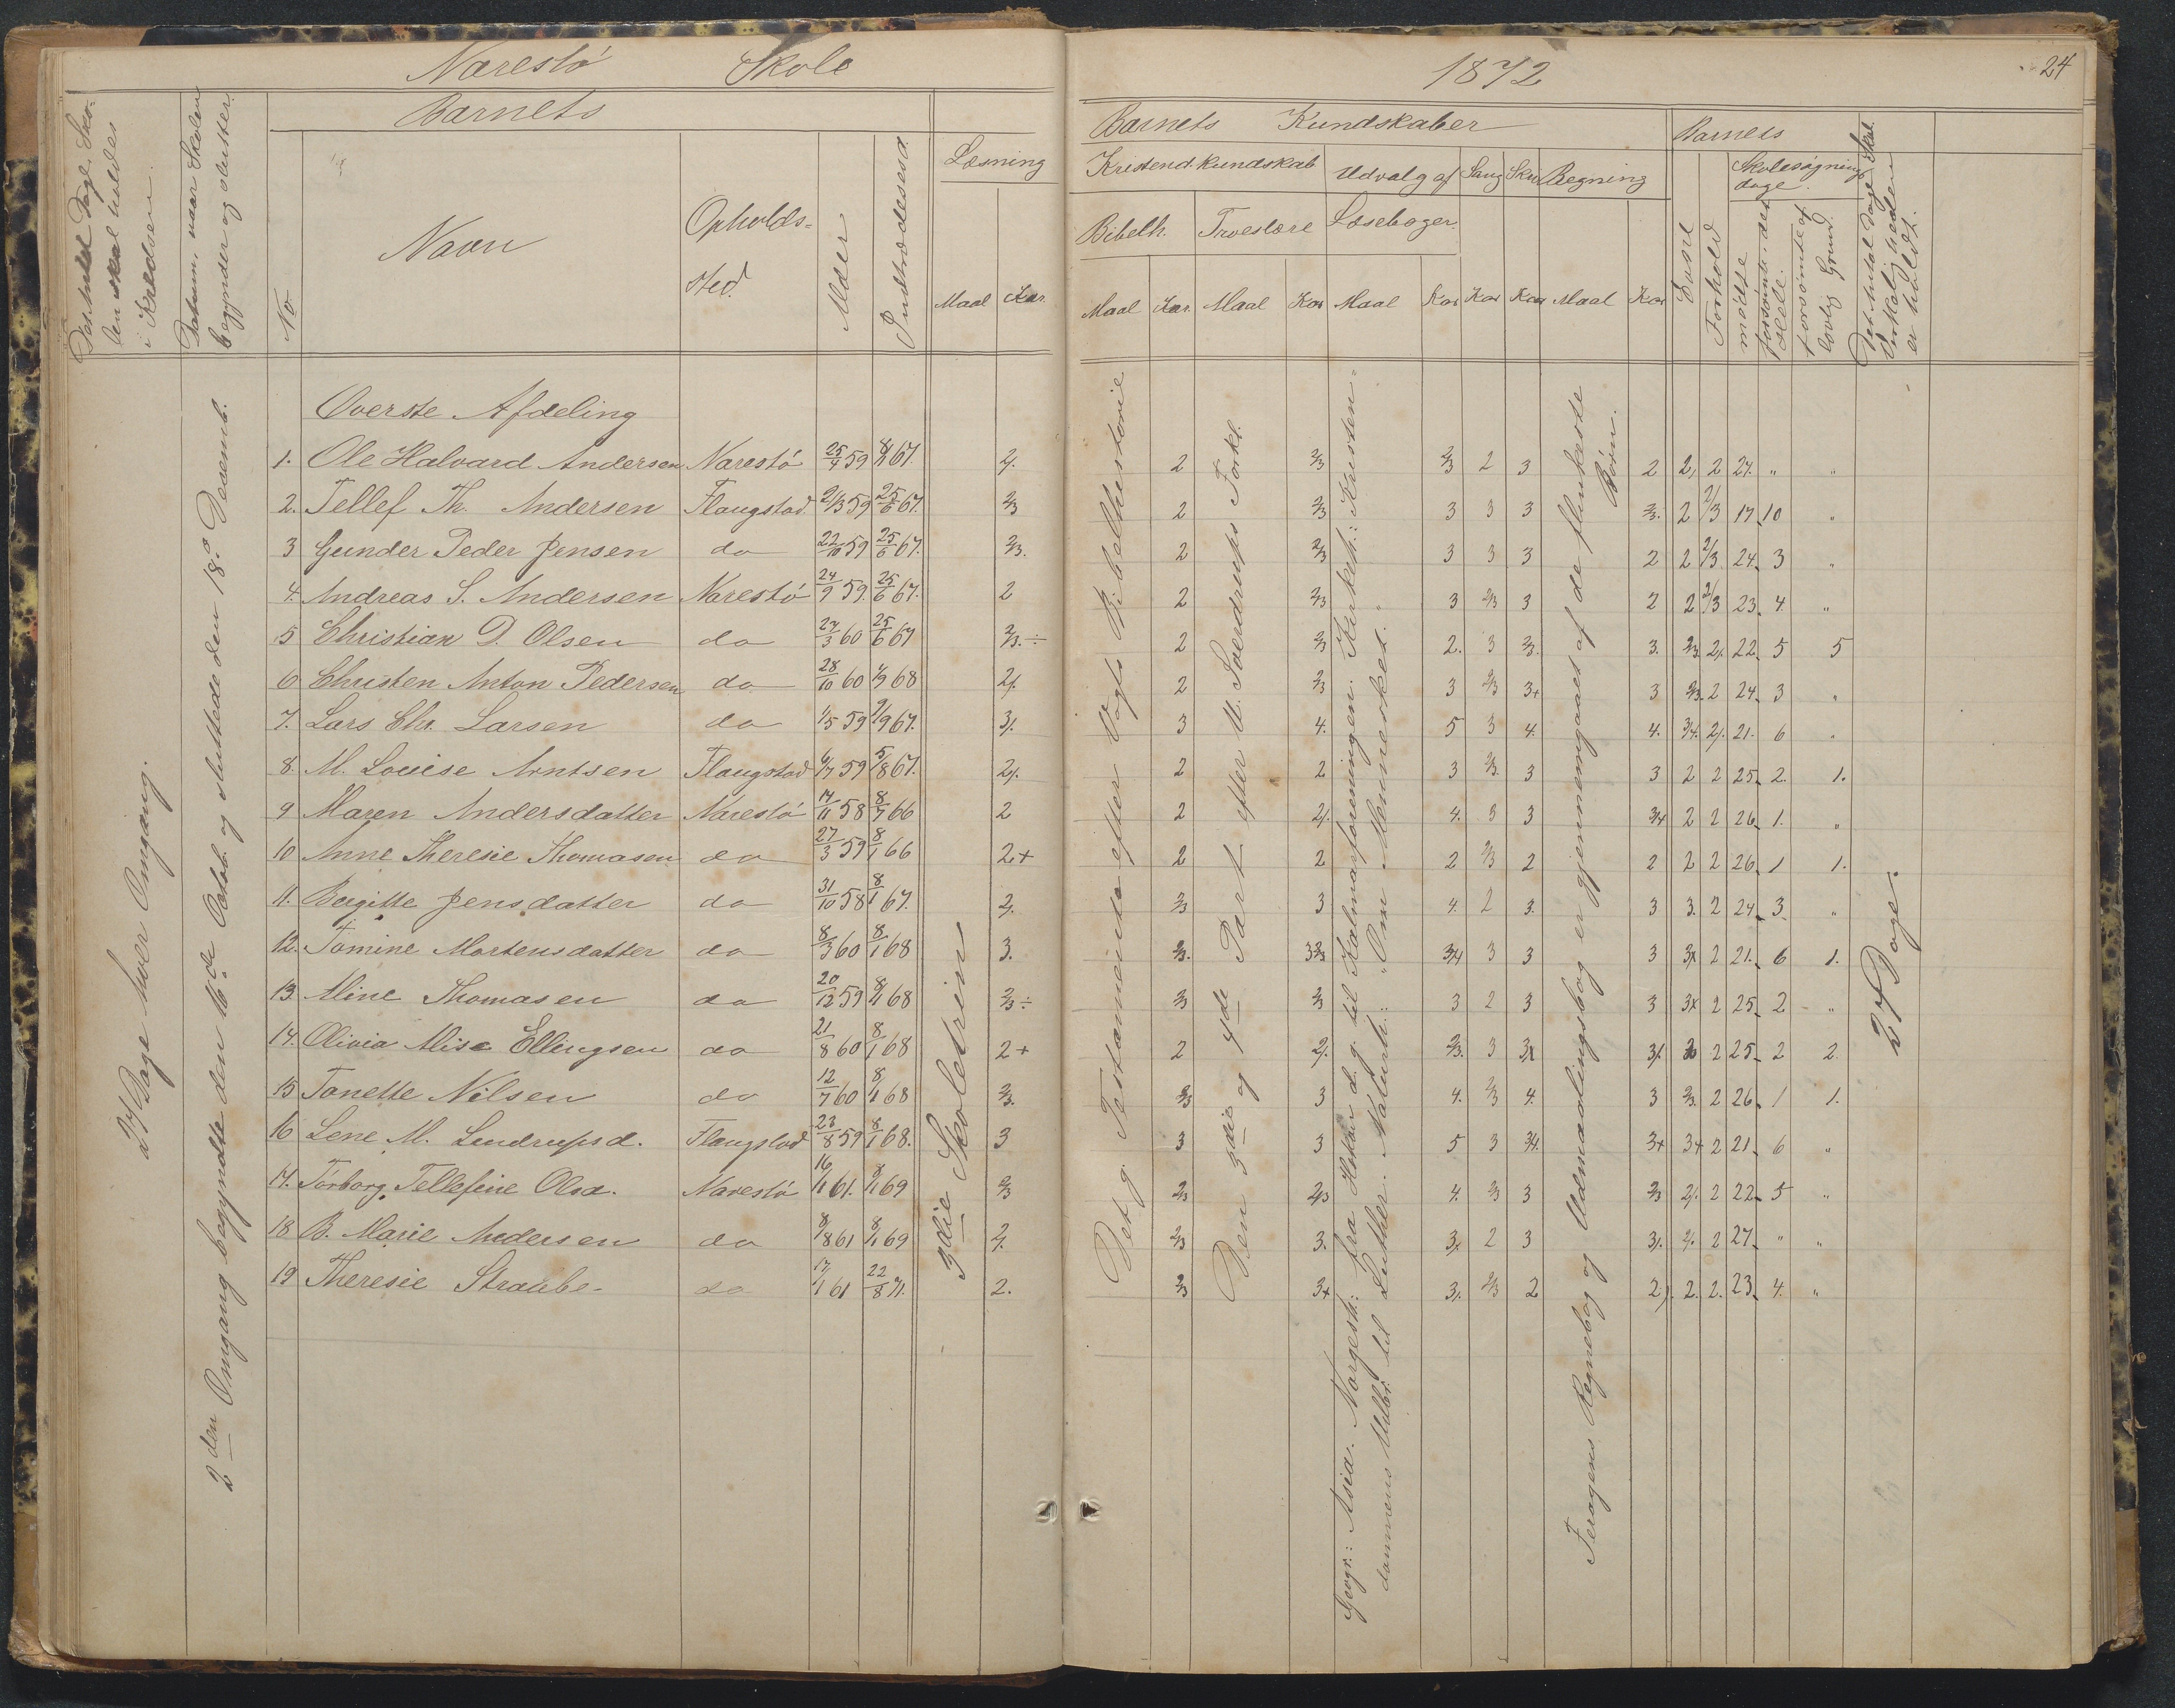 Narestö Skole
1872
24
Det Antal Dage, Sko-
len skal holdes
i Kredsen.
Datum, naar Skolen
begynder og slutter.
Barnets
No
Navn
Opholds-
sted.
Alder
Indtrædelsestid.
Læsning
Maal Kar.
Barnets Kundskaber
Kristend. kundskab
Udvalg af
Læsebøger.
Sang
Skr.
Regning
Bibelh. Troeslære
Maal Kar. Maal Kar Maal Kar Kar Kar Maal Kar
Barnets
Evne
Forhold
Skolesøgnings
dage.
mödte
forsömte det
Hele.
forsömte af
lovlig Grund.
Det Antal Dage Skol.
virkeligheden
er holdt.
27 Dage hver Omgang.
2den Omgang begyndte den 16de Octob. og sluttede den 18de Decemb.
3die Skoletrin
Det g. Testamente efter Vogts Bibelhistorie
Den 3die og 4de Part efter U. Sverdrups Forkl.
Geogr.: Asia. Norgesh: fra Hakon d. g. til Kalmarforeningen. Kirkeh: Kristen-
dommens Udbr. til Luther. Naturh: "Om Mennesket."
Feragens Regnebog og Udmaalingsbog er gjennemgaaet af de flinkeste
Börn.
27 Dage.
Överste Afdeling
1. Ole Halvard Andersen Narestö 25/4 59 8/1 67. 2/. 2 2/3 2/3 2 3 2 2/ 2 27. " "
2. Tellef Th. Andersen Flangstad 2/13 59 25/6 67. 2/3 2 2/3 3 3 3 2/3. 2 2/3 17. 10 "
3 Gunder Peder Jensen do 22/10 59 25/6 67. 2/3. 2 2/3 3 3 3 2 2 2/3 24. 3 "
4. Andreas S. Andersen Narestö 24/9 59. 25/6 67. 2 2 2/3 3 2/3 3 2 2 2/3 23. 4. "
5 Christian D. Olsen do 27/3 60 25/6 67 2/3. ÷ 2 2/3 2. 3 2/3. 3. 2/3. 2/. 22. 5 5
6 Christen Anton Pedersen do 28/10 60 1/9 68 2/. 2 2/3 3 2/3 3+ 3 2/3. 2 24. 3 "
7. Lars Chr. Larsen do 1/5 59 2/9 67. 3/. 3 4. 5 3 4. 4. 3/4. 2/. 21. 6 "
8. M. Louise Arntsen Flangstad 6/7 59 5/8 67. 2/. 2 2 3 2/3. 3 3 2 2 25. 2. 1.
9 Maren Andersdatter Narestö 17/11 58 8/7 66 2 2 2/. 4. 3 3 3/4 2 2 26. 1. "
10 Anne Theresie Thomasen do 27/3 59 8/1 66 2+ 2 2 2 2/3 2 2 2 2 26. 1 1.
11. Bergitte Jensdatter do 31/10 58 8/1 67. 2/. 2/3 3 4. 2 3. 3 3. 2 24. 3. "
12. Tomine Mortensdatter do 8/3 60 8/1 68 3. 2/3. 3 2/3 3/4 3 3 3 3/ 2 21. 6 1.
13. Mine Thomasen do 20/12 59 8/1 68 2/3 ÷ 2/3 2/3 3 2 3 3 3+ 2 25. 2 "
14. Olivia Alise Ellingsen do 21/8 60 8/1 68 2+ 2 2/. 2/3. 3 3/ 3/. 2 25. 2 2.
15 Tonette Nilsen do 12/7 60 8/1 68 2/3. 2/3 3 4. 2/3 4. 3 2/3. 2 26. 1 1.
16 Lene M. Lendrupsd. Flangstad 23/8 59 8/1 68. 3 3 3 5 3 3/4. 3+ 3+ 2 21. 6 "
17. Torborg Tellefine Olsd. Narestö 16/1 61. 8/1 69 2/3 2/3 2/3 4. 2/3 3 2/3 2/. 2 22. 5 "
18 B. Marie Andersen do 8/8 61 8/1 69 2/. 2/3 3. 3/. 2 3 3/. 2/. 2 27. " "
19 Theresie Straube do 17/1 61 22/8 71. 2. 2/3 3+ 3/. 2/3 2 2/. 2. 2. 23. 4. "